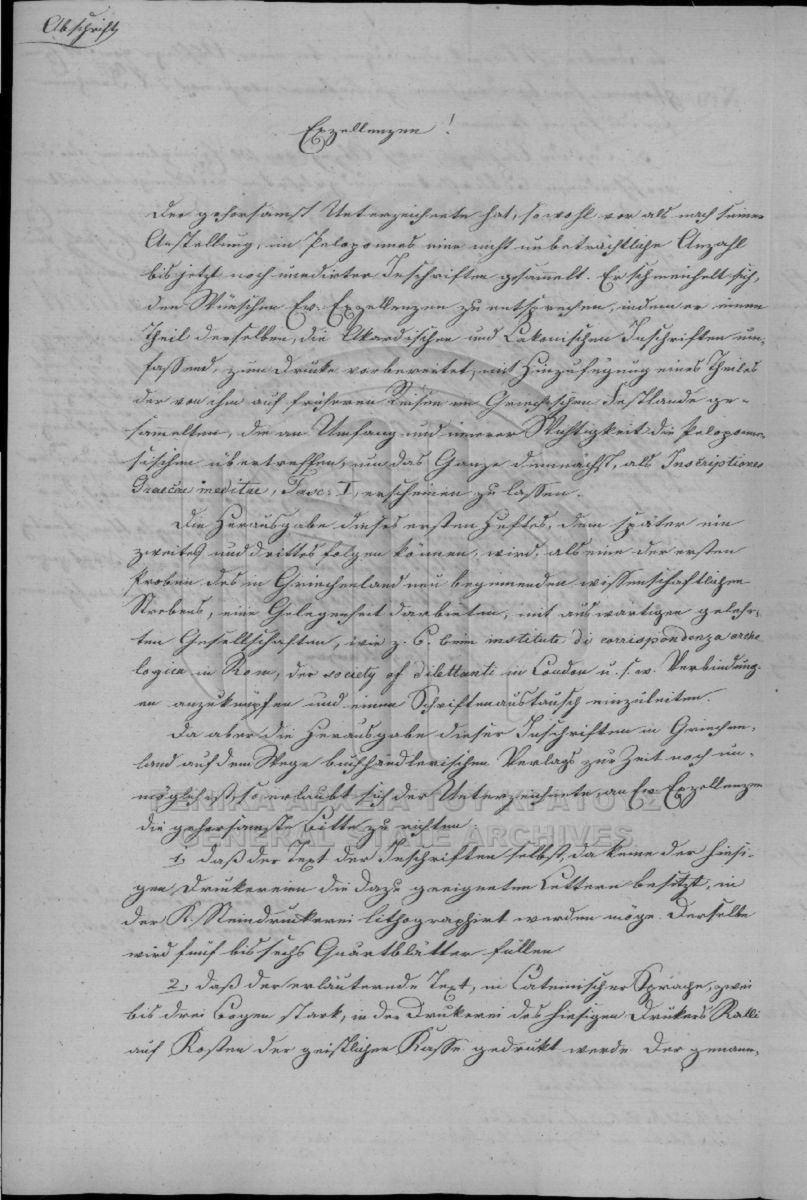 Abschrift
Exzellenzen!
Der gehorsamst Unterzeichnete hat, sowohl vor als nach seiner
Anstellung, im Peloponnes eine nicht unbeträchtliche Anzahl
bis jetzt noch unedirter Inschriften gesammelt. Er schmeichelt sich,
den Wünschen Ew. Exzellenzen zu entsprechen, indem er einen
Theil derselben, die Arkardischen und Lakonischen Inschriften um-
fassend, zum Drucke vorbereitet, mit Hinzufügung eines Theiles
der von ihm auf früheren Reisen im Griechischen Festlande ge-
samelten, die an Umfang und innerer Wichtigkeit die Peloponne-
sischen übertreffen, um das Ganze demnächst, als Inscriptiones
Graecae ineditae, Fasc: I, erscheinen zu lassen.
Die Herausgabe dieses ersten Heftes, dem später ein
zweites und drittes folgen können, wird, als eine der ersten
Proben des in Griechenland neu beginnenden wissenschaftlichen
Strebens, eine Gelegenheit darbieten, mit auswärtigen gelehr-
ten Gesellschaften, wie z. B. beim instituto di corrispondenza arche
logica in Rom, der society of dilettanti in London u. s. w. Verbindung-
en anzuknüpfen und einen Schriftenaustausch einzuleiten.
Da aber die Herausgabe dieser Inschriften in Griechen-
land auf dem Wege buchhändlerischen Verlags zur Zeit noch un-
möglich ist, so erlaubt sich der Unterzeichnete, an Ew. Exzellenzen
die gehorsamste Bitte zu richten
1, daß der Text der Inschriften selbst, da keine der hiesi-
gen Druckereien die dazu geeigneten Lettern besitzt, in
der K. Steindruckerei lithographirt werden möge. Derselbe
wird fünf bis sechs Quartblätter füllen
2, daß der erläuternde Text, in Lateinischer Sprache, zwei
bis drei Bogen stark, in der Drukerei des hiesigen Drukers Ralli
auf Kosten der geistlichen Kasse gedrukt werde. Der genann-
ΓΕΝΙΚΑ ΑΡΧΕΙΑ ΤΟΥ ΚΡΑΤΟΥΣ
GENERAL STATE ARCHIVES